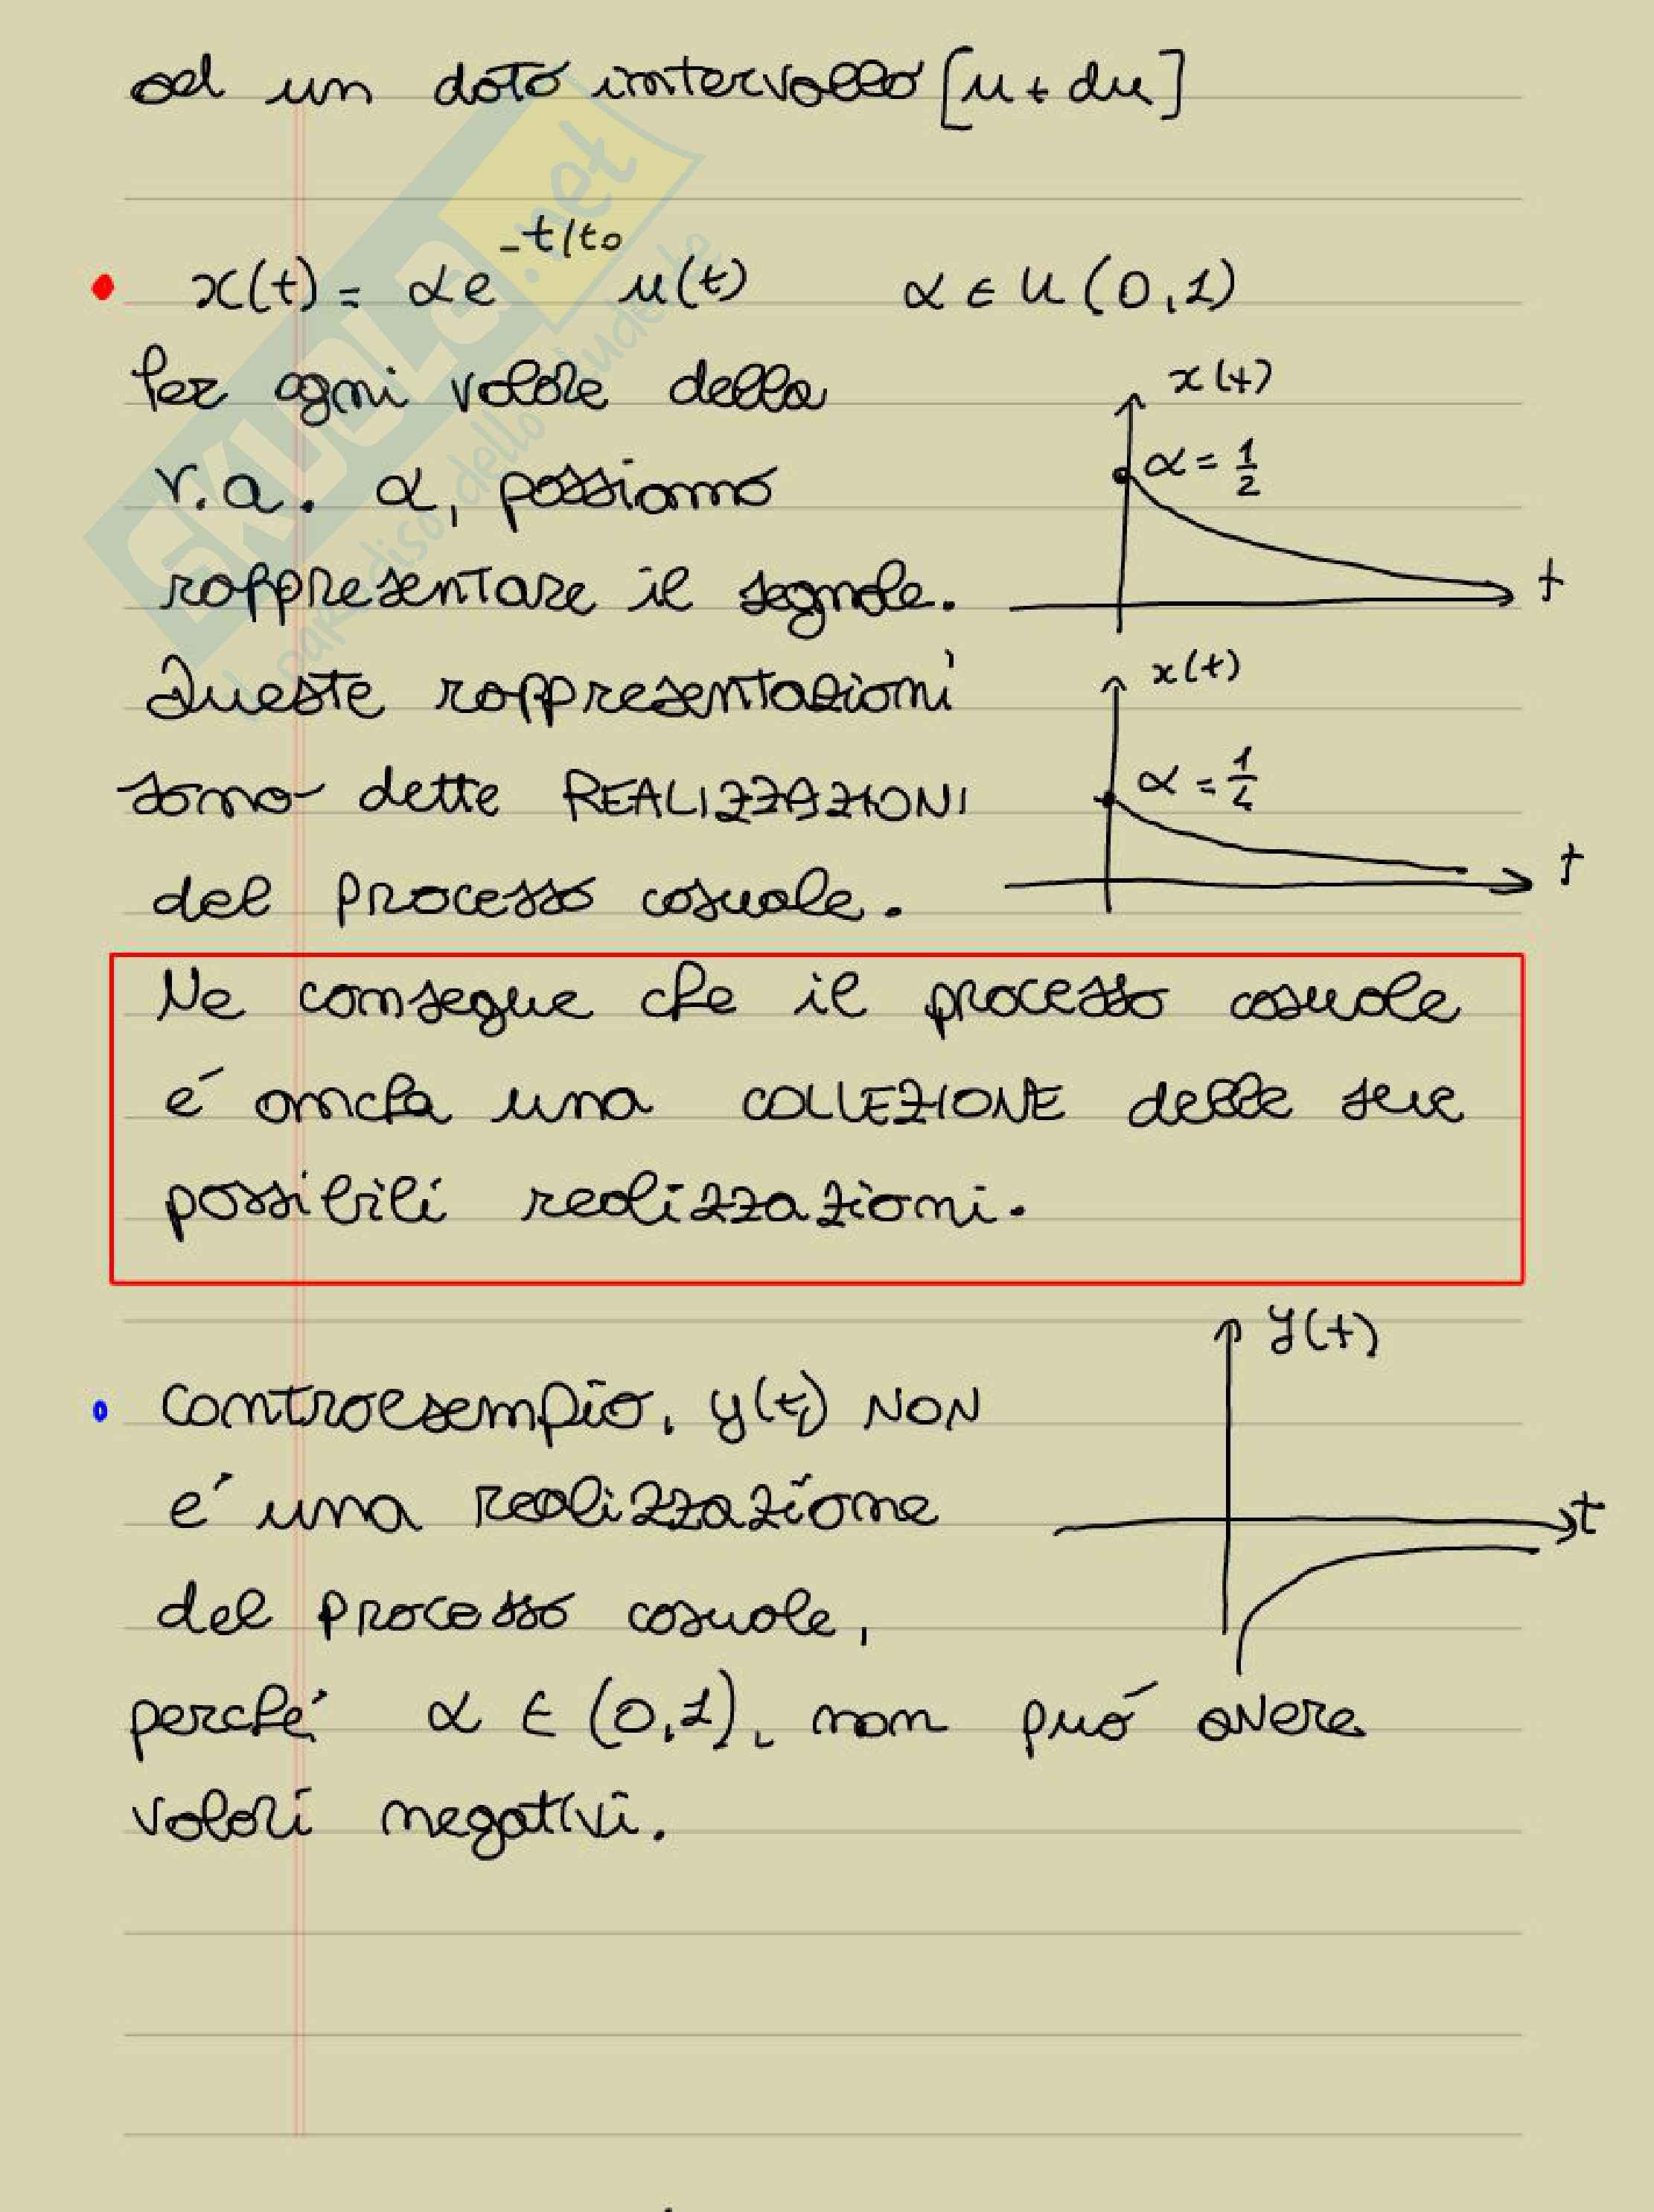 ad un dato intervallo [u + du]
x(t) = αe^{-t/t₀} u(t) α ∈ U(0,1)
Per ogni valore della
r.a. α, possiamo
rappresentare il segnale.
Queste rappresentazioni
sono dette REALIZZAZIONI
del processo casuale.
x(t)
α = 1/2
t
x(t)
α = 1/4
t
Ne consegue che il processo casuale
é anche una COLLEZIONE delle sue
possibili realizzazioni.
y(t)
t
Controesempio, y(t) NON
é una realizzazione
del processo casuale,
perché α ∈ (0,1), non puó avere
valori negativi.
SKUOLA.net
il paradiso dello studente